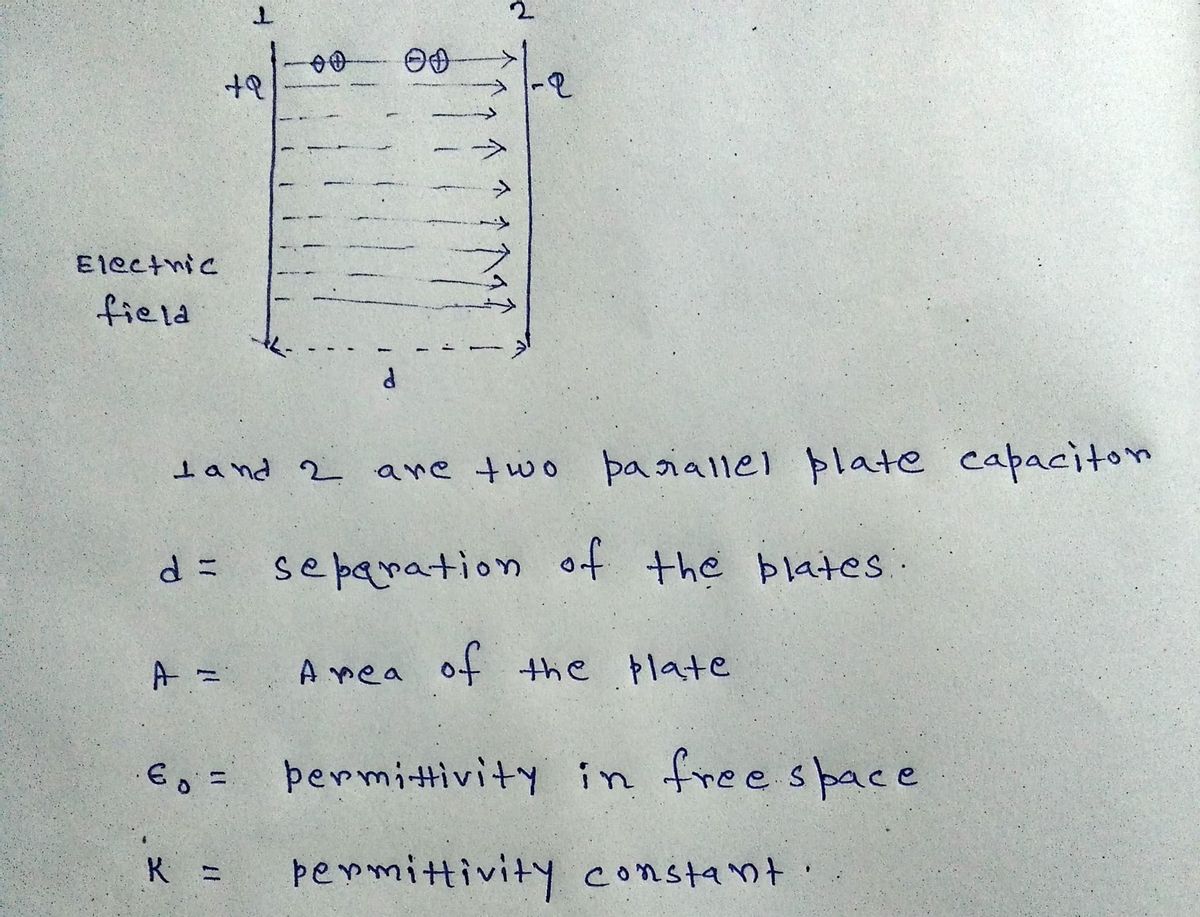 1 2
+Q -Q
Electric
field
d
1 and 2 are two parallel plate capacitor
d = separation of the plates.
A = Area of the plate
ϵ₀ = permittivity in free space
K = permittivity constant.